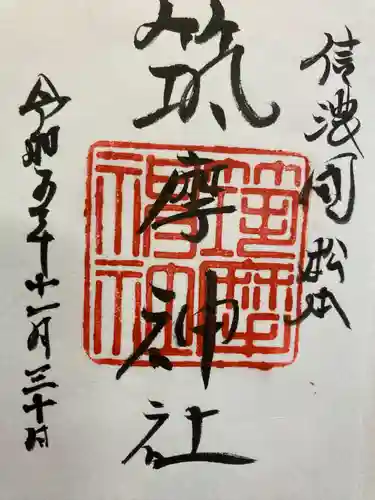 信濃国松本
筑摩神社
令和五年十一月三十日
筑摩神社